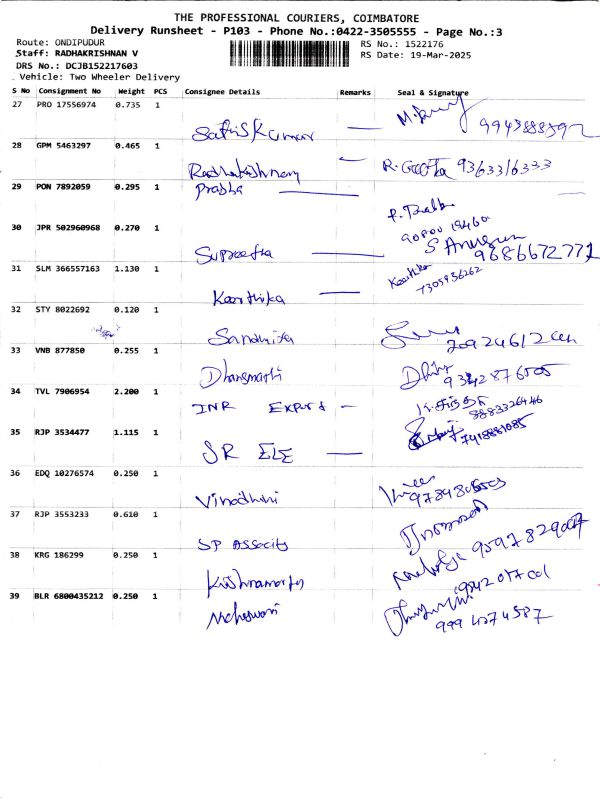 THE PROFESSIONAL COURIERS, COIMBATORE
Delivery Runsheet - P103 - Phone No.:0422-3505555 - Page No.:3
Route: ONDIPUDUR RS No.: 1522176
Staff: RADHAKRISHNAN V RS Date: 19-Mar-2025
DRS No.: DCJB152217603
Vehicle: Two Wheeler Delivery
S No Consignment No Weight PCS Consignee Details Remarks Seal & Signature
27 PRO 17556974 0.735 1
SathisKumar
28 GPM 5463297 0.465 1
Radhakrishnan R. Geetha 9363316333
29 PON 7892059 0.295 1
Prabha
30 JPR 502960968 0.270 1
Supreetha 9686672771
31 SLM 366557163 1.130 1
Karthika Karthika 7305936262
32 STY 8022692 0.120 1
Sandhiya
33 VNB 877850 0.255 1
34 TVL 7906954 2.200 1
INR Export 8883326446
35 RJP 3534477 1.115 1
SR ELE 7418881085
36 EDQ 10276574 0.250 1
Vinodhini
37 RJP 3553233 0.610 1
SP Associts
38 KRG 186299 0.250 1
Krishnamorty
39 BLR 6800435212 0.250 1
Maheswari 9994274587